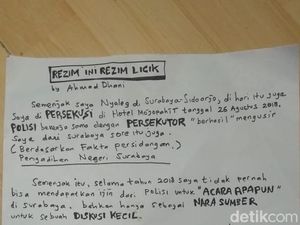 REZIM INI REZIM LICIK
by Ahmad Dhani
Semenjak saya Nyaleg di Surabaya-Sidoarjo, di hari itu juga
Saya di PERSEKUSI di Hotel Mojopahit tanggal 26 Agustus 2018.
POLISI bekerja sama dengan PERSEKUTOR "berhasil" mengusir
Saya dari Surabaya sore itu juga.
(Berdasarkan Fakta persidangan)
Pengadilan Negeri Surabaya
Semenjak itu, selama tahun 2018 saya tidak pernah
bisa mendapatkan ijin dari Polisi untuk "ACARA APAPUN"
di Surabaya. bahkan hanya sebagai NARA SUMBER
untuk sebuah DISKUSI KECIL.
detikcom